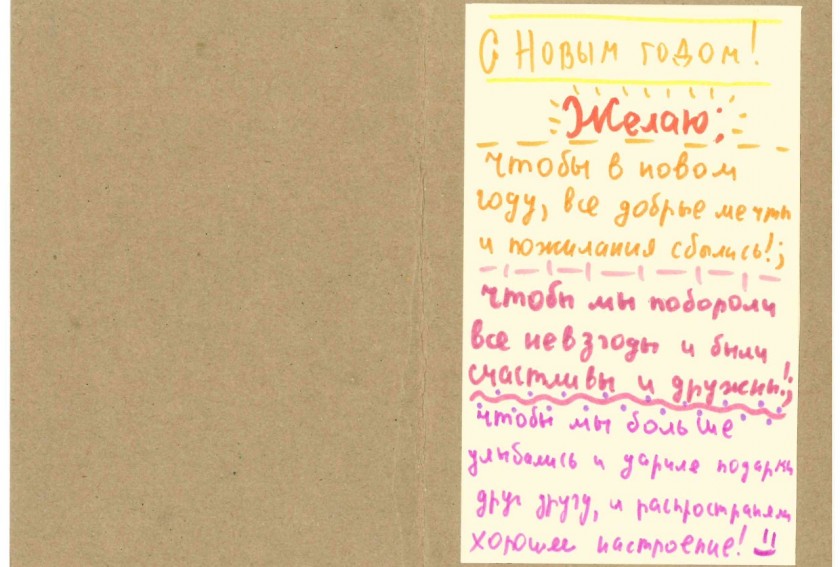 С Новым годом!
Желаю:
чтобы в новом
году, все добрые мечты
и пожилания сбылись!;
чтобы мы побороли
все невзгоды и были
счастливы и дружны!;
чтобы мы больше
улыбались и дариле подарки
друг другу, и распространяли
хорошее настроение!